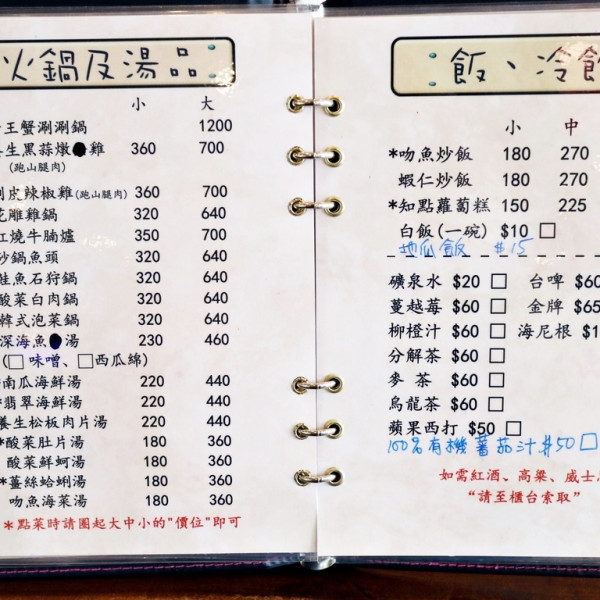 火鍋及湯品
小 大
王蟹涮涮鍋 1200
生黑蒜燉雞 360 700
(跑山腿肉)
剝皮辣椒雞(跑山腿肉) 360 700
花雕雞鍋 320 640
紅燒牛腩爐 350 700
砂鍋魚頭 320 640
鮭魚石狩鍋 320 640
酸菜白肉鍋 320 640
韓式泡菜鍋 320 640
深海魚湯 230 460
(□ 味噌、□西瓜綿)
南瓜海鮮湯 220 440
*翡翠海鮮湯 220 440
養生松板肉片湯 220 440
*酸菜肚片湯 180 360
酸菜鮮蚵湯 180 360
*薑絲蛤蜊湯 180 360
吻魚海菜湯 180 360
*點菜時請圈起大中小的"價位"即可
飯、冷飲
小 中
*吻魚炒飯 180 270
蝦仁炒飯 180 270
*知點蘿蔔糕 150 225
白飯(一碗) $10 □
地瓜飯 $15
礦泉水 $20 □ 台啤 $60
蔓越莓 $60 □ 金牌 $65
柳橙汁 $60 □ 海尼根 $1
分解茶 $60 □
麥茶 $60 □
烏龍茶 $60 □
蘋果西打 $50 □
100%有機蕃茄汁 $50 □
如需紅酒、高粱、威士
"請至櫃台索取"